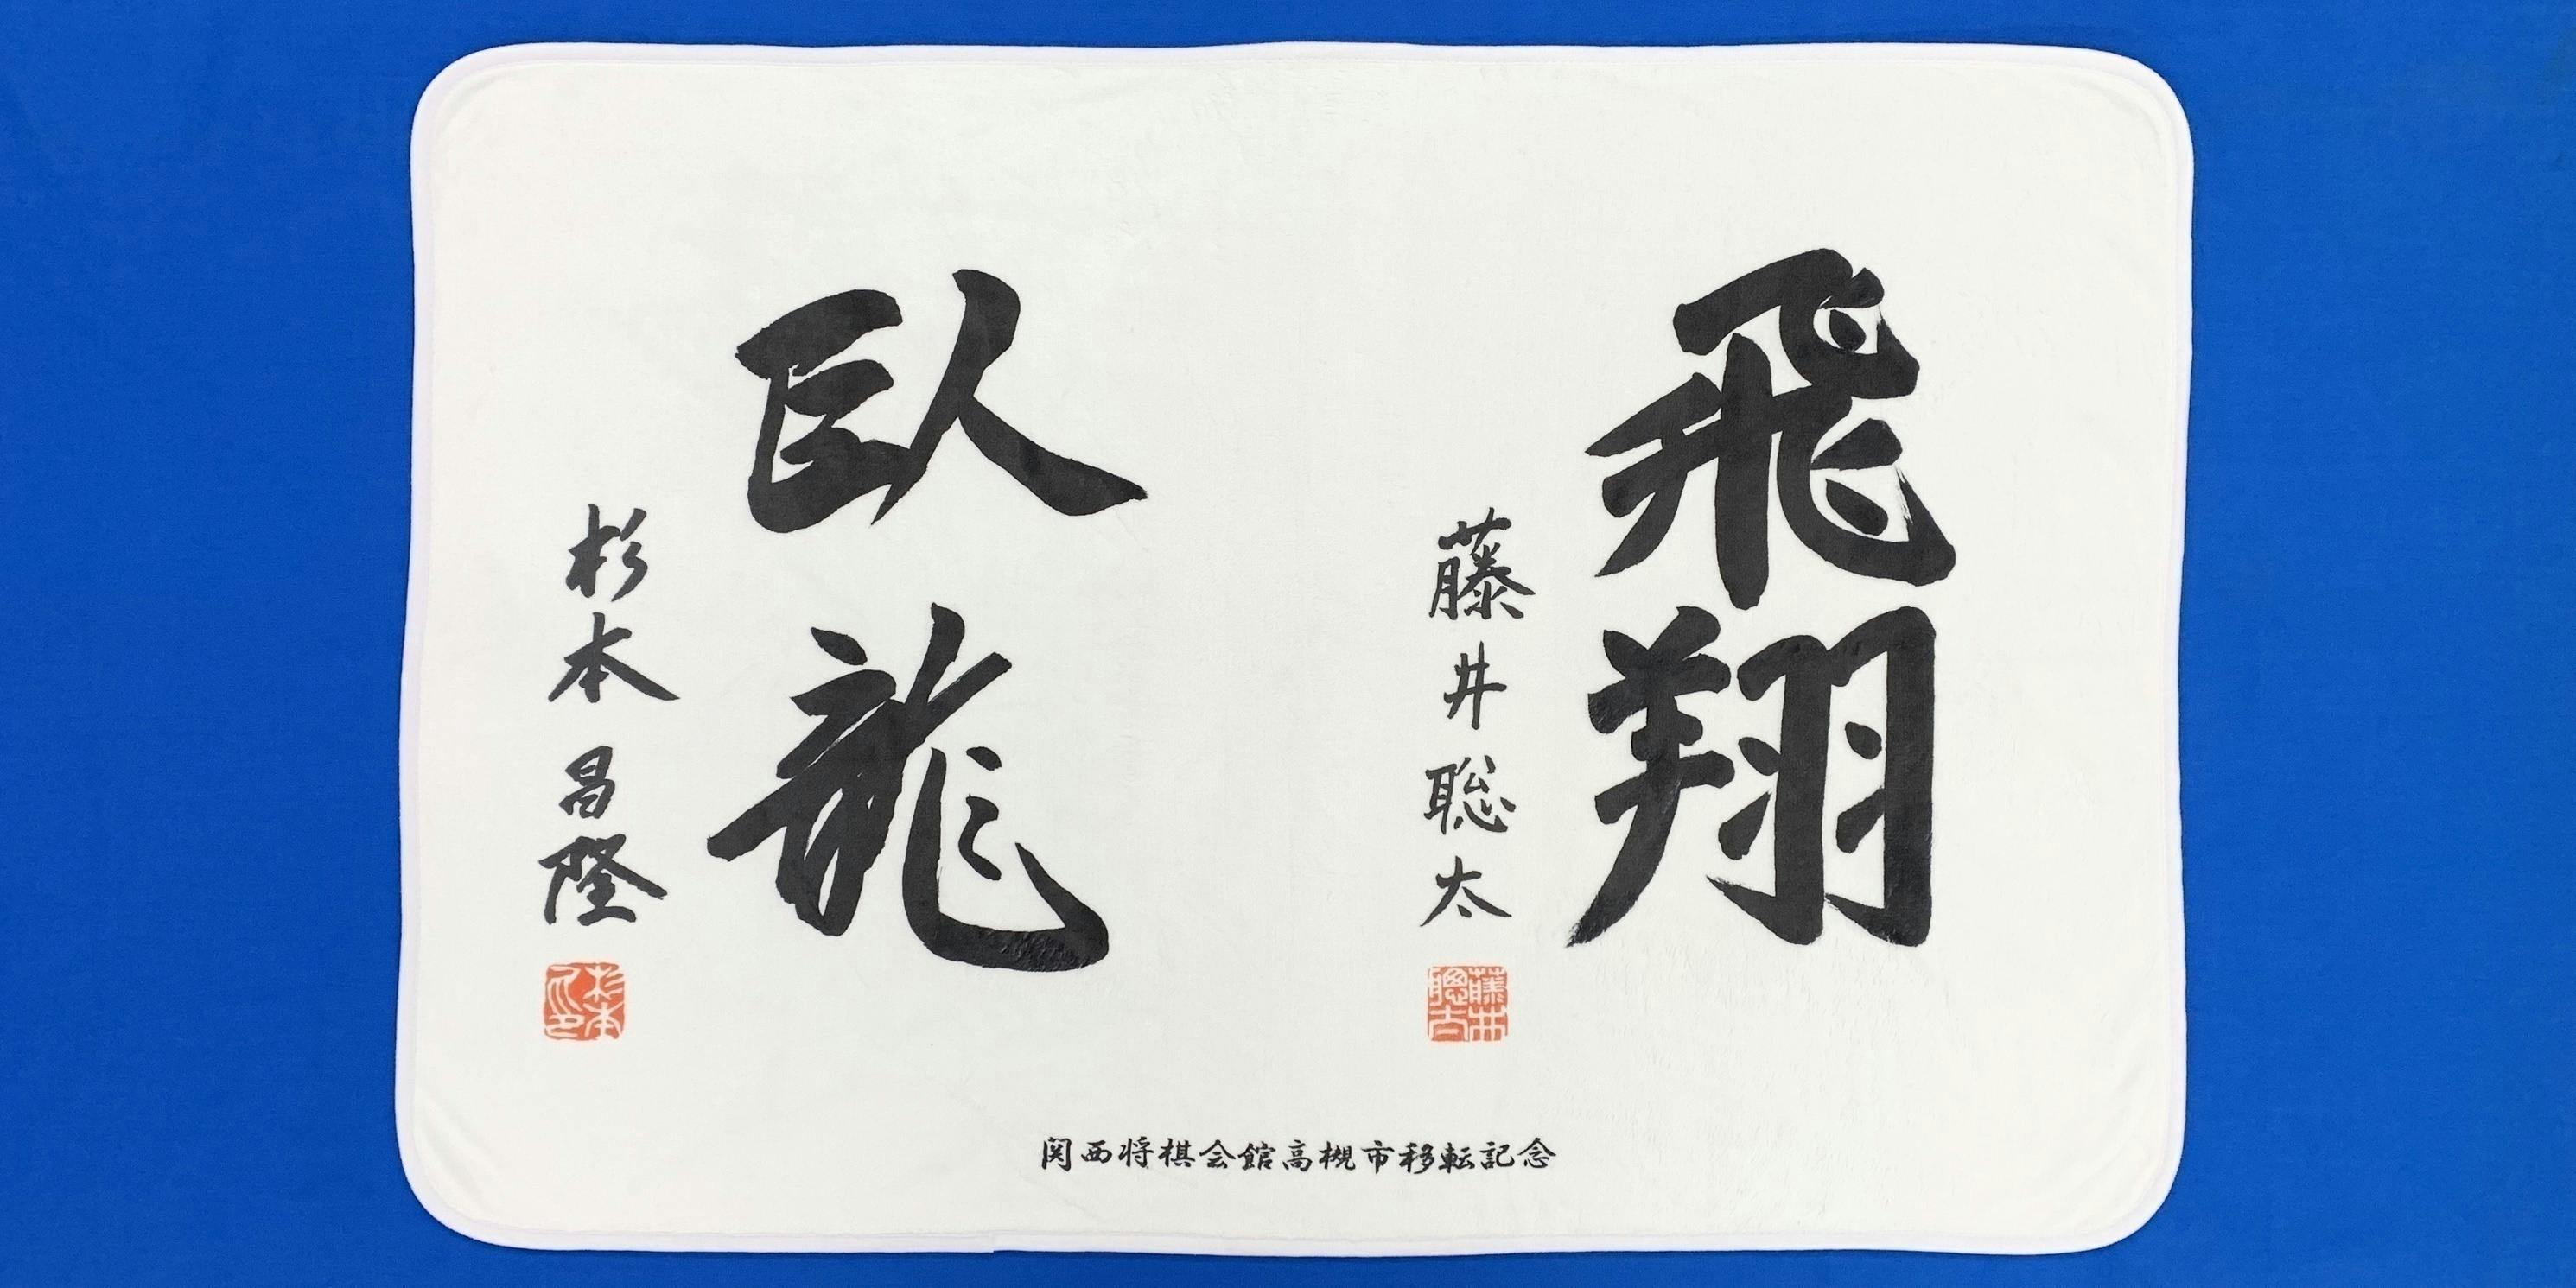 飛翔
藤井聡太
藤井聰太
臥龍
杉本昌隆
杉本
関西将棋会館高槻市移転記念